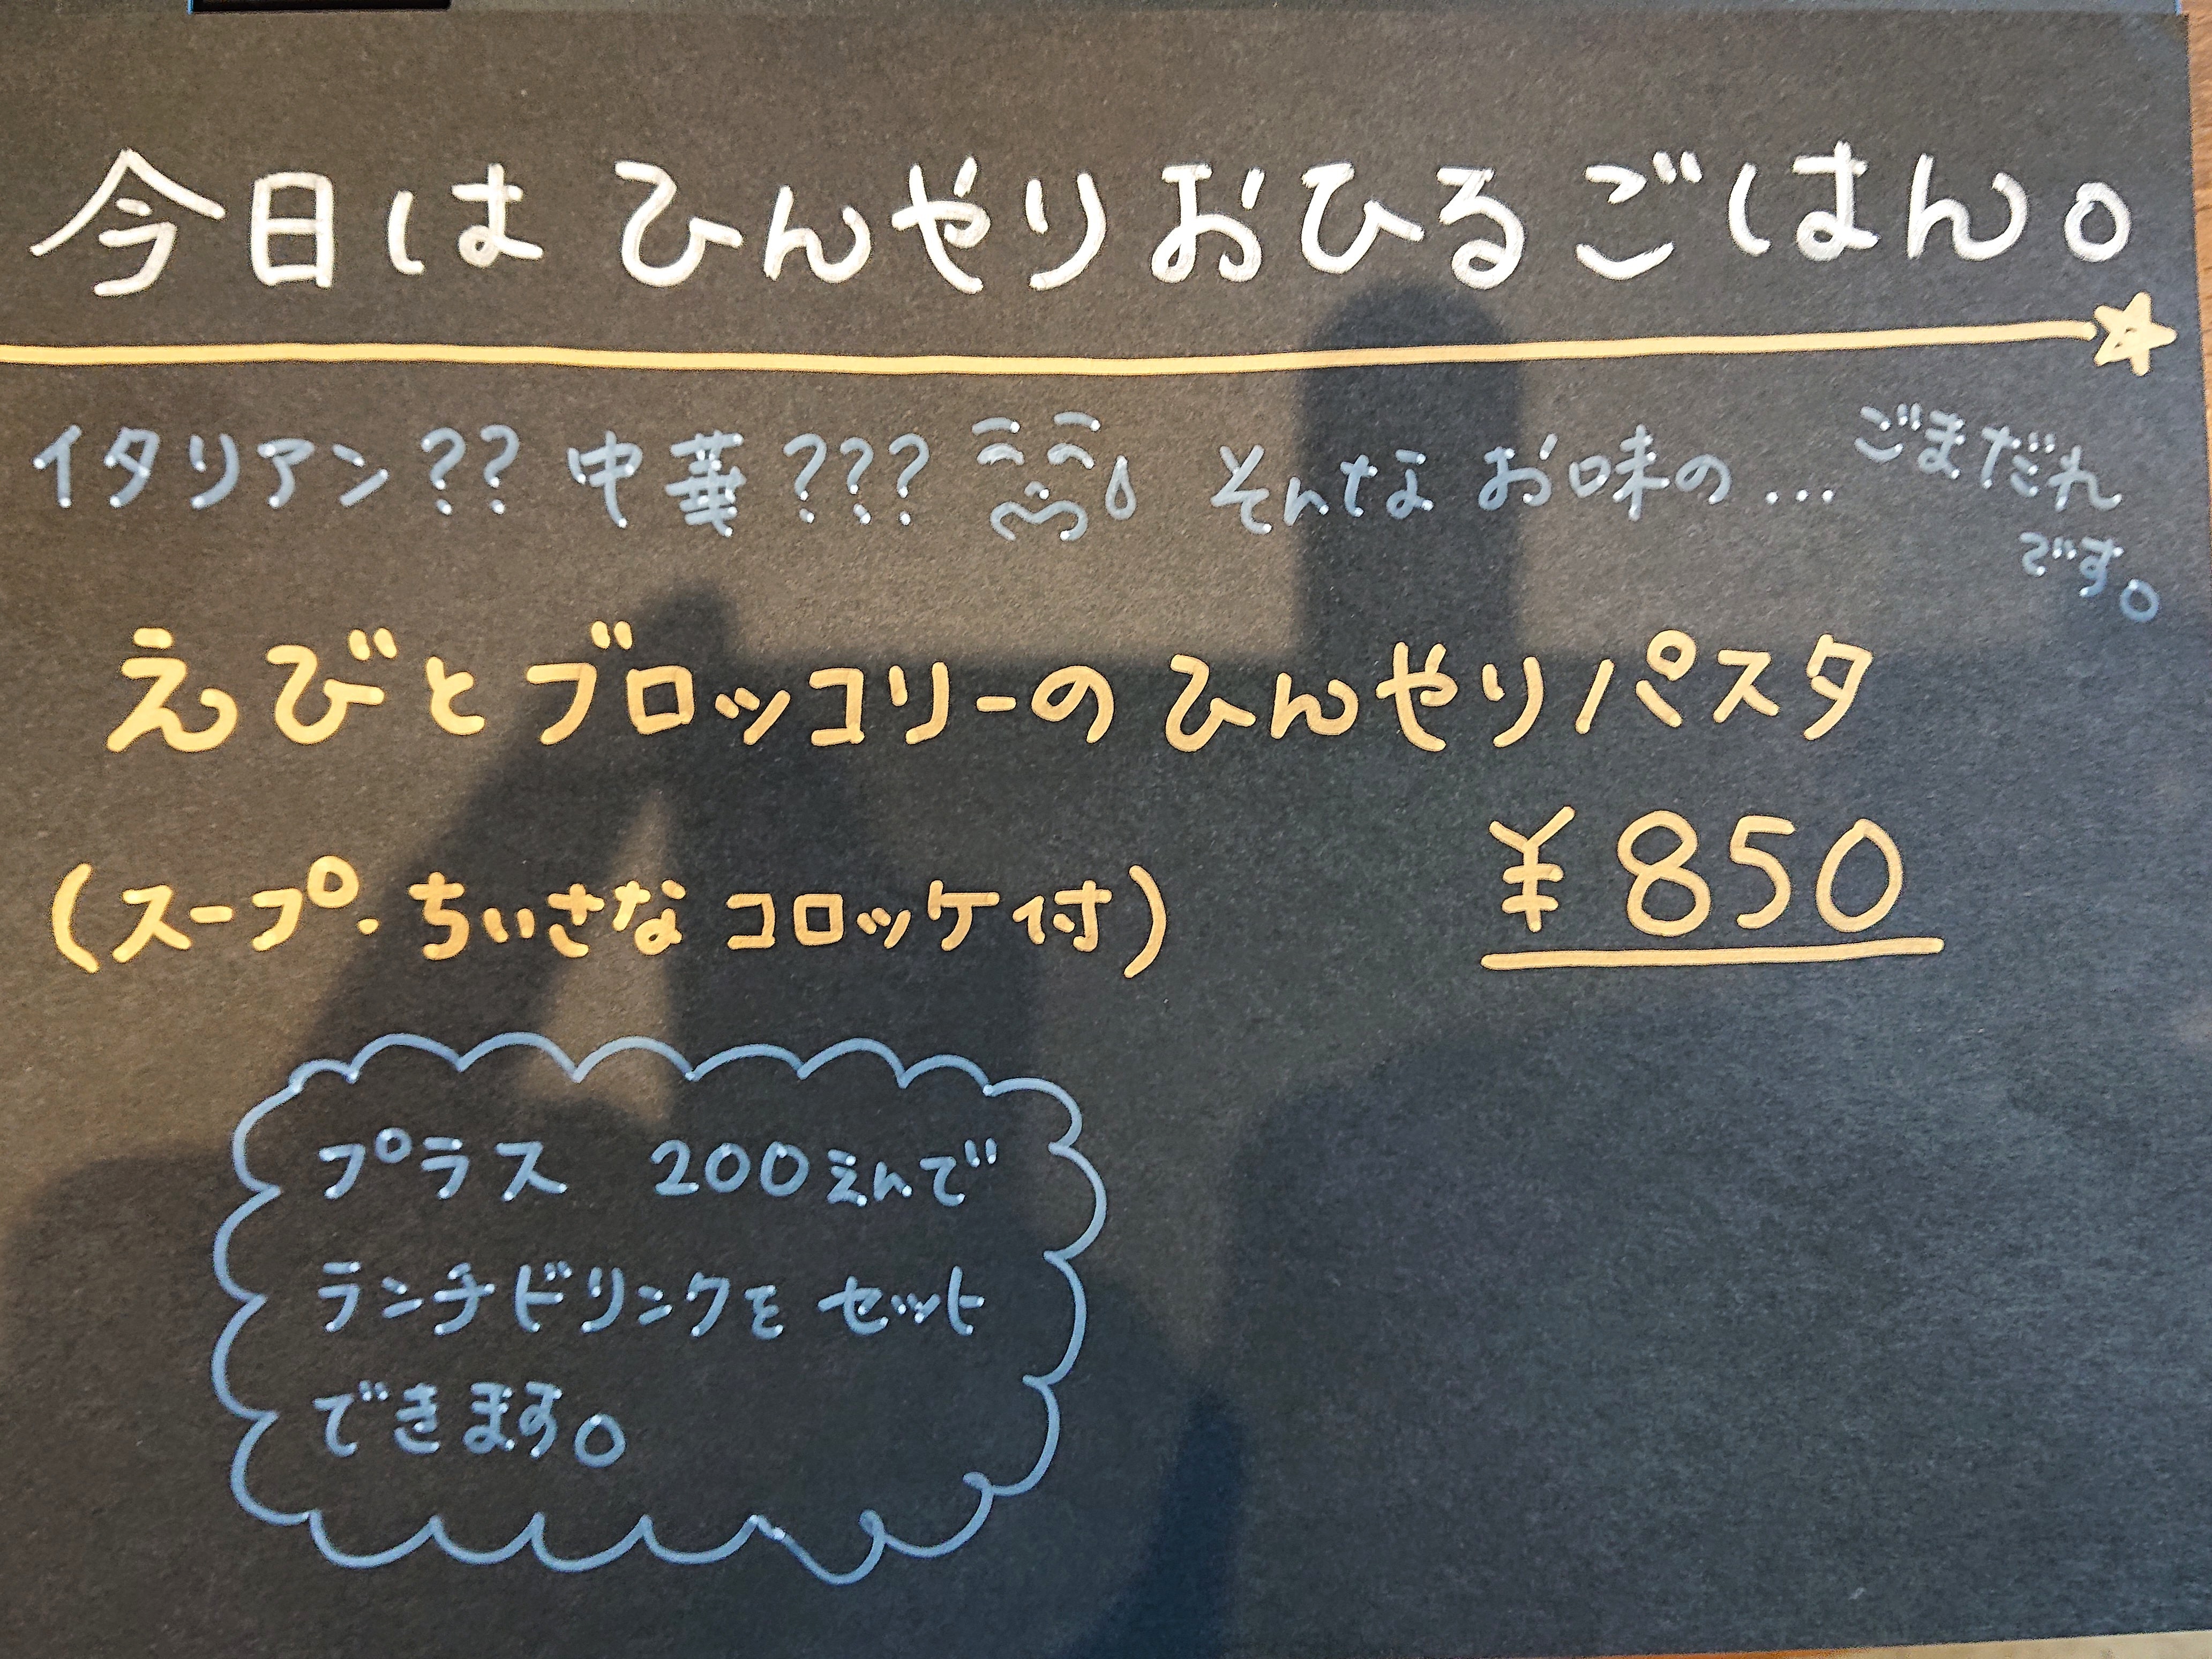 今日は ひんやりおひるごはん。
イタリアン?? 中華??? そんな お味の... ごまだれ
です。
えびとブロッコリーの ひんやりパスタ
(スープ・ちいさな コロッケ付) ¥850
プラス 200えんで
ランチドリンクを セット
できます。